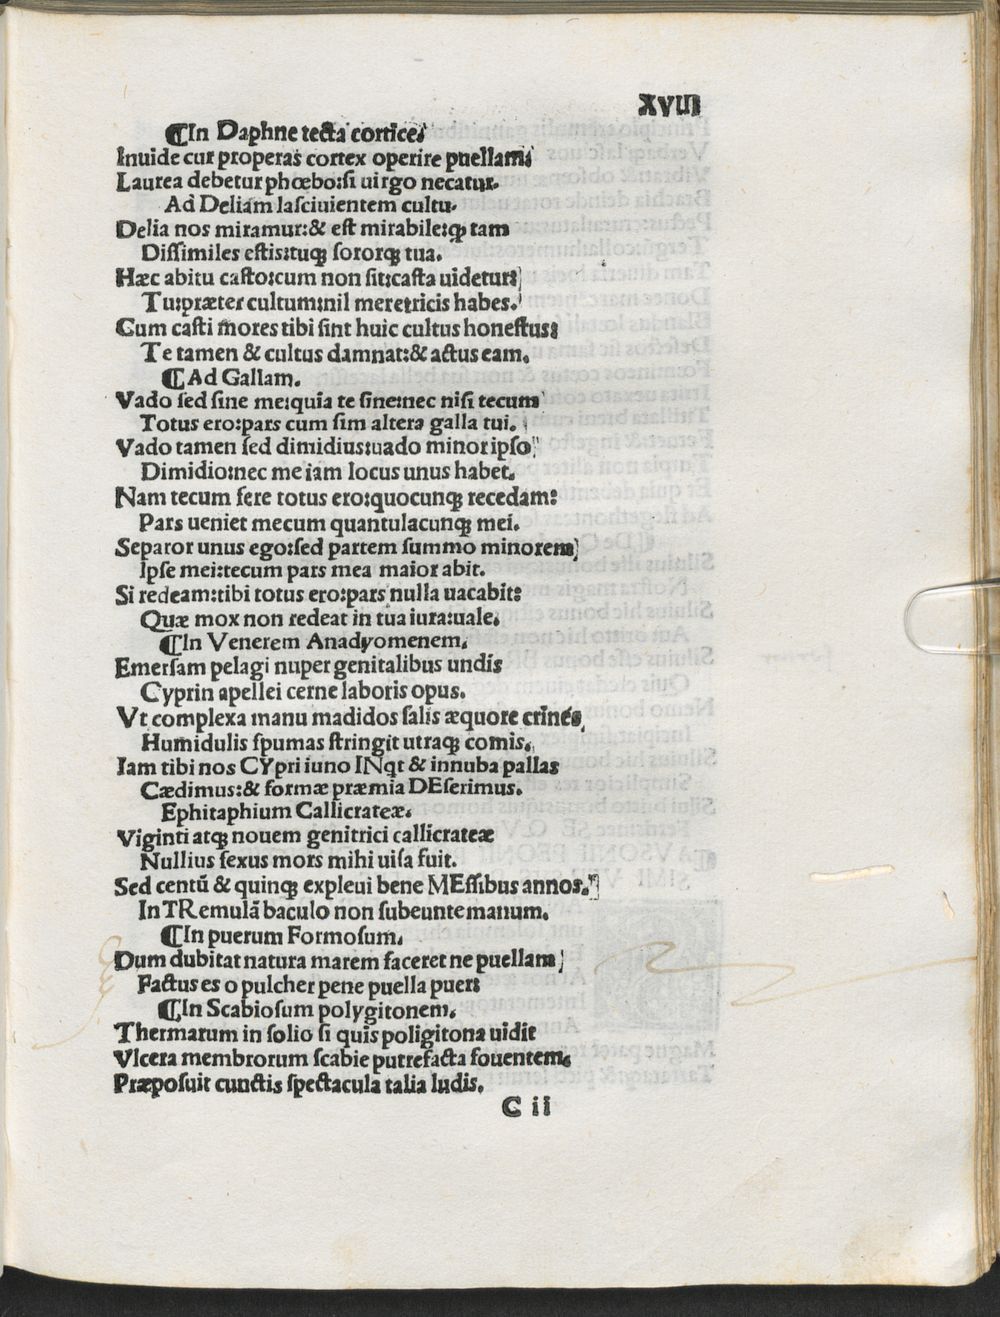 XVIII
¶In Daphne tecta cortice.
Inuide cur properas cortex operire puellam:
Laurea debetur phœbo:si uirgo necatur.
Ad Deliam lasciuientem cultu.
Delia nos miramur:& est mirabile:ꝙ tam
Dissimiles estis:tuqꝫ sororqꝫ tua.
Hæc abitu casto:cum non sit:casta uidetur:
Tu:præter cultum:nil meretricis habes.
Cum casti mores tibi sint huic cultus honestus:
Te tamen & cultus damnat:& actus eam.
¶Ad Gallam.
Vado sed sine me:quia te sine:nec nisi tecum
Totus ero:pars cum sim altera galla tui.
Vado tamen sed dimidius:uado minor ipso
Dimidio:nec me iam locus unus habet.
Nam tecum fere totus ero:quocunqꝫ recedam:
Pars ueniet mecum quantulacunqꝫ mei.
Separor unus ego:sed partem summo minorem
Ipse mei:tecum pars mea maior abit.
Si redeam:tibi totus ero:pars nulla uacabit:
Quæ mox non redeat in tua iura:uale.
¶In Venerem Anadyomenem.
Emersam pelagi nuper genitalibus undis
Cyprin apellei cerne laboris opus.
Vt complexa manu madidos salis æquore crines
Humidulis spumas stringit utraqꝫ comis.
Iam tibi nos CYpri iuno INqt & innuba pallas
Cædimus:& formæ præmia DEferimus.
Ephitaphium Callicrateæ.
Viginti atqꝫ nouem genitrici callicrateæ
Nullius sexus mors mihi uisa fuit.
Sed centū & quinqꝫ expleui bene MEssibus annos.
In TRemulā baculo non subeunte manum.
¶In puerum Formosum.
Dum dubitat natura marem faceret ne puellam
Factus es o pulcher pene puella puer:
¶In Scabiosum polygitonem.
Thermarum in solio si quis poligitona uidit
Vlcera membrorum scabie putrefacta fouentem.
Præposuit cunctis spectacula talia ludis.
C ii